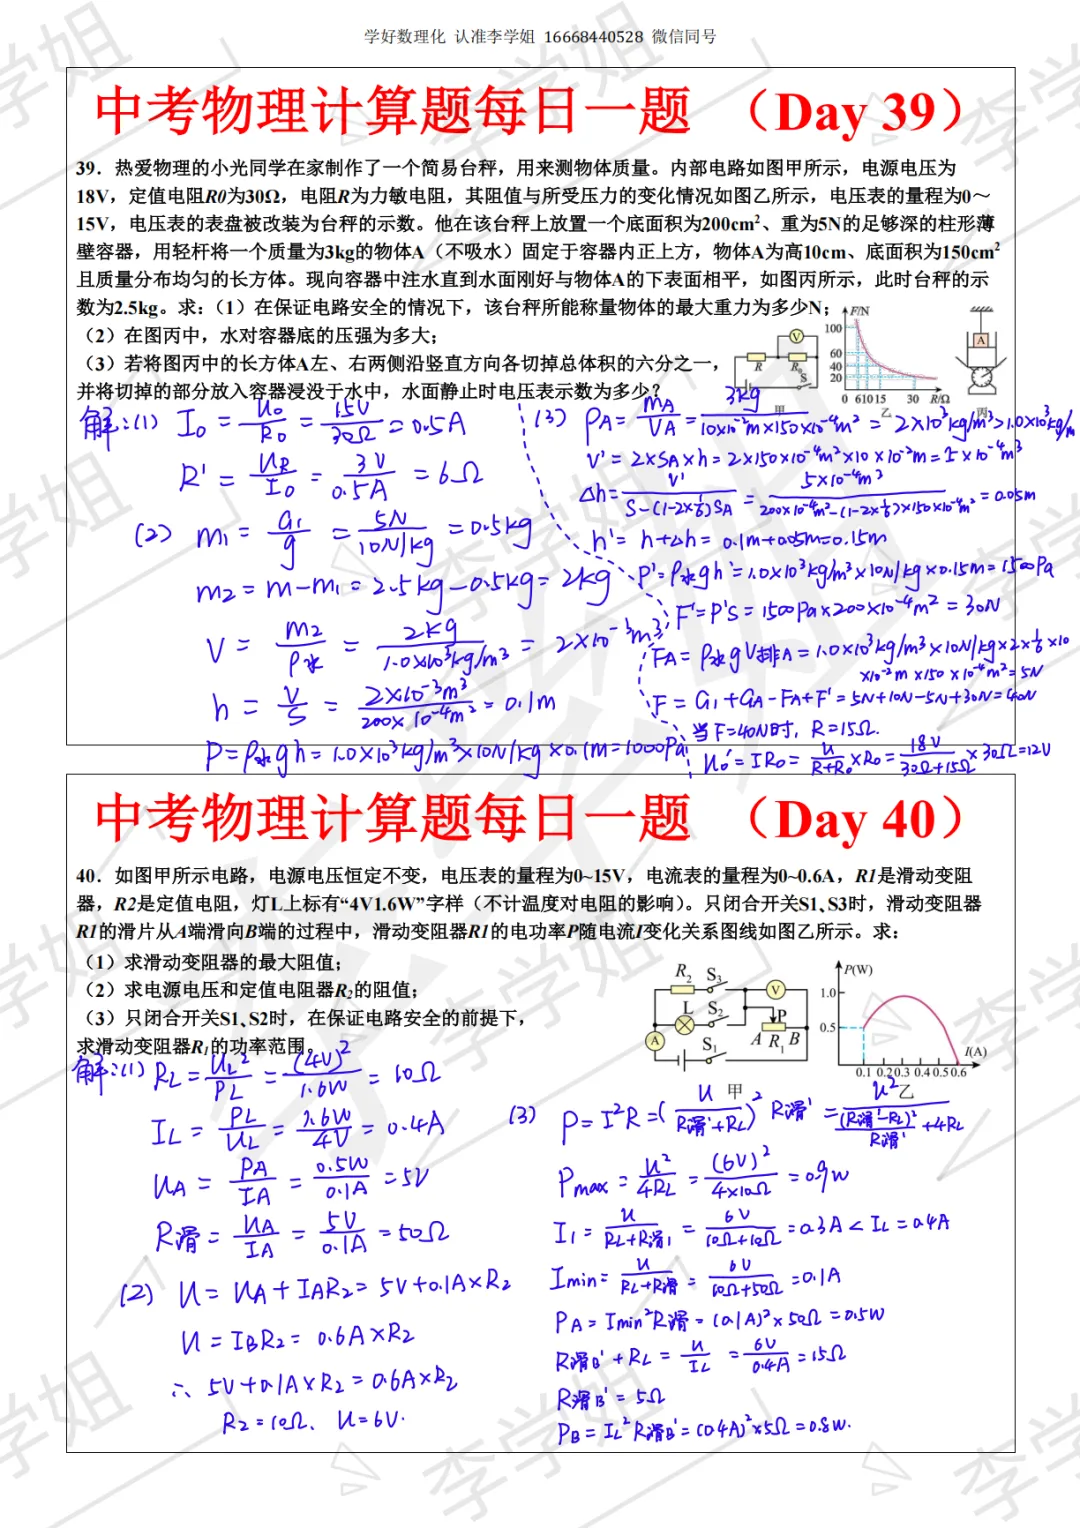 学好数理化 认准李学姐 16668440528 微信同号
中考物理计算题每日一题 （Day 39）
39．热爱物理的小光同学在家制作了一个简易台秤，用来测物体质量。内部电路如图甲所示，电源电压为
18V，定值电阻R0为30Ω，电阻R为力敏电阻，其阻值与所受压力的变化情况如图乙所示，电压表的量程为0～
15V，电压表的表盘被改装为台秤的示数。他在该台秤上放置一个底面积为200cm²、重为5N的足够深的柱形薄
壁容器，用轻杆将一个质量为3kg的物体A（不吸水）固定于容器内正上方，物体A为高10cm、底面积为150cm²
且质量分布均匀的长方体。现向容器中注水直到水面刚好与物体A的下表面相平，如图丙所示，此时台秤的示
数为2.5kg。求：（1）在保证电路安全的情况下，该台秤所能称量物体的最大重力为多少N；
（2）在图丙中，水对容器底的压强为多大；
（3）若将图丙中的长方体A左、右两侧沿竖直方向各切掉总体积的六分之一，
并将切掉的部分放入容器浸没于水中，水面静止时电压表示数为多少？
V R R₀ S 甲
F/N 100 60 40 20 0 6 10 15 30 R/Ω 乙
A 丙
解：(1) I₀ = U₀/R₀ = 15V/30Ω = 0.5A
R' = U_R/I₀ = 3V/0.5A = 6Ω
(2) m₁ = G₁/g = 5N/10N/kg = 0.5kg
m₂ = m-m₁ = 2.5kg-0.5kg = 2kg
V = m₂/ρ水 = 2kg/1.0×10³kg/m³ = 2×10⁻³m³
h = V/S = 2×10⁻³m³/200×10⁻⁴m² = 0.1m
P=ρ水gh=1.0×10³kg/m³×10N/kg×0.1m=1000Pa
(3) ρA = mA/VA = 3kg/10×10⁻²m×150×10⁻⁴m² = 2×10³kg/m³>1.0×10³kg/m
V' = 2×SA×h = 2×150×10⁻⁴m²×10×10⁻²m=5×10⁻⁴m³
Δh = V'/S-(1-2×1/6)SA = 5×10⁻⁴m³/200×10⁻⁴m²-(1-2×1/6)×150×10⁻⁴m² = 0.05m
h' = h+Δh = 0.1m+0.05m=0.15m
P'=ρ水gh'=1.0×10³kg/m³×10N/kg×0.15m=1500Pa
F'=P'S=1500Pa×200×10⁻⁴m²=30N
FA=ρ水gV排A=1.0×10³kg/m³×10N/kg×2×1/6×10
×10⁻²m×150×10⁻⁴m²=5N
F = G₁+GA-FA+F'=5N+10N-5N+30N=40N
当F=40N时，R=15Ω.
U₀'=IR₀=U/R+R₀×R₀=18V/30Ω+15Ω×30Ω=12V
中考物理计算题每日一题 （Day 40）
40．如图甲所示电路，电源电压恒定不变，电压表的量程为0~15V，电流表的量程为0~0.6A，R1是滑动变阻
器，R2是定值电阻，灯L上标有“4V1.6W”字样（不计温度对电阻的影响）。只闭合开关S1、S3时，滑动变阻器
R1的滑片从A端滑向B端的过程中，滑动变阻器R1的电功率P随电流I变化关系图线如图乙所示。求：
（1）求滑动变阻器的最大阻值；
（2）求电源电压和定值电阻器R₂的阻值；
（3）只闭合开关S1、S2时，在保证电路安全的前提下，
求滑动变阻器R₁的功率范围。
R₂ S₃ V L S₂ P A A R₁ B S₁ 甲
P(W) 1.0 0.5 I(A) 0.1 0.2 0.3 0.4 0.5 0.6 乙
解：(1) RL = UL²/PL = (4V)²/1.6W = 10Ω
IL = PL/UL = 1.6W/4V = 0.4A
UA = PA/IA = 0.5W/0.1A = 5V
R滑 = UA/IA = 5V/0.1A = 50Ω
(2) U = UA+IAR₂ = 5V+0.1A×R₂
U = IBR₂ = 0.6A×R₂
∴ 5V+0.1A×R₂ = 0.6A×R₂
R₂=10Ω、U=6V.
(3) P=I²R=(U/R滑'+RL)²R滑'=U²/(R滑'-RL)²/R滑'+4RL
Pmax = U²/4RL = (6V)²/4×10Ω = 0.9W
I₁ = U/RL+R滑₁ = 6V/10Ω+10Ω = 0.3A < IL = 0.4A
Imin = U/RL+R滑 = 6V/10Ω+50Ω = 0.1A
PA = Imin²R滑 = (0.1A)²×50Ω = 0.5W
R滑B'+RL = U/IL = 6V/0.4A = 15Ω
R滑B' = 5Ω
PB = IL²R滑B' = (0.4A)²×5Ω = 0.8W.